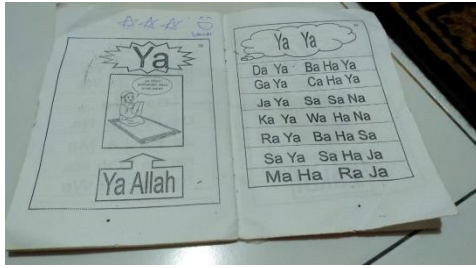 Ya
Ya Allah
Ya Ya
Da Ya Ba Ha Ya
Ga Ya Ca Ha Ya
Ja Ya Sa Sa Na
Ka Ya Wa Ha Na
Ra Ya Ba Ha Sa
Sa Ya Sa Ha Ja
Ma Ha Ra Ja